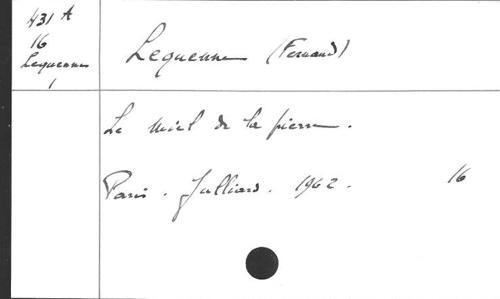 431 A
16
Lequenne
1
Lequenne (Fernand)
Le miel de la pierre.
Paris. Julliard. 1962.
16